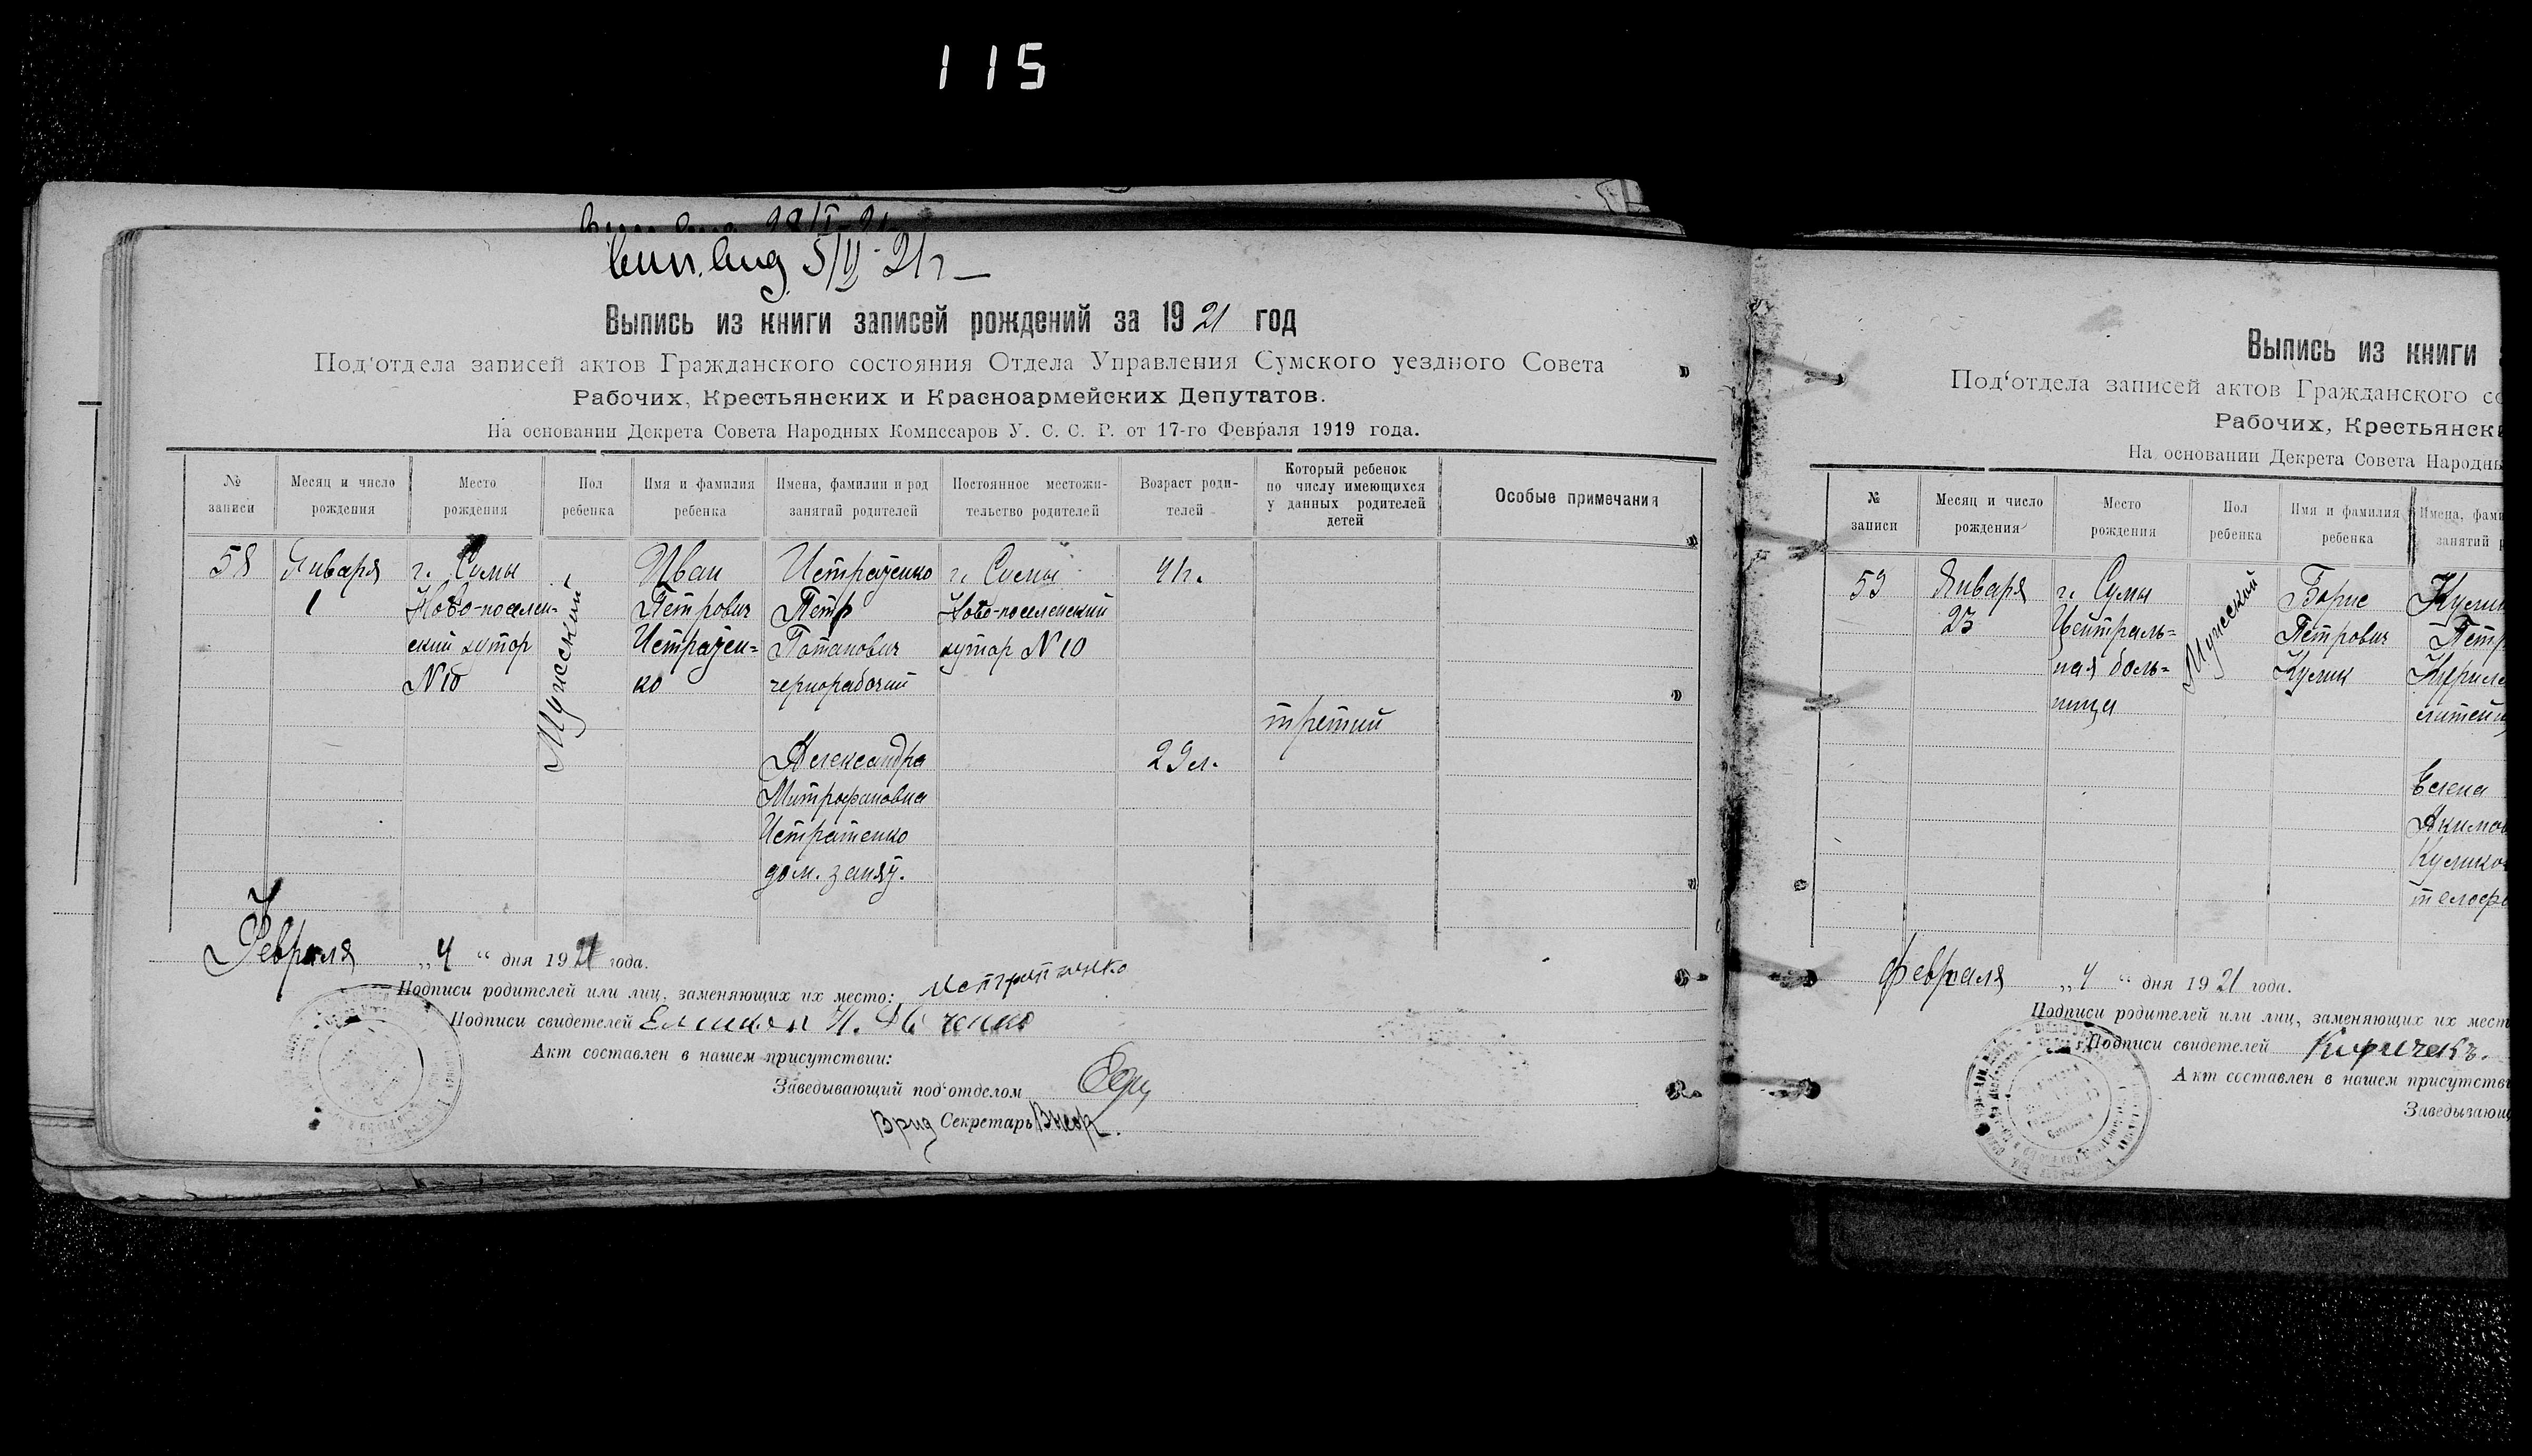 115
5/II 21 г.
Выпись из книги записей рождений за 1921 год
Под'отдела записей актов Гражданского состояния Отдела Управления Сумского уездного Совета
Рабочих, Крестьянских и Красноармейских Депутатов.
На основании Декрета Совета Народных Комиссаров У. С. С. Р. от 17-го Февраля 1919 года.
№ записи
Месяц и число рождения
Место рождения
Пол ребенка
Имя и фамилия ребенка
Имена, фамилии и род занятий родителей
Постоянное местожительство родителей
Возраст родителей
Который ребенок по числу имеющихся у данных родителей детей
Особые примечания
58
Января
1
г. Сумы
Ново-поселен-
ский хутор
N 10
Мужеский
Иван
Петрович
Истратен-
ко
Истратенко
Петр
Потапович
чернорабочий
Александра
Митрофановна
Истратенко
дом. заняч.
г. Сумы
Ново-поселенский
хутор N 10
41 г.
29 л.
третий
Февраля „4“ дня 1921 года.
Подписи родителей или лиц, заменяющих их место: Истратенко
Подписи свидетелей
Акт составлен в нашем присутствии:
Заведывающий под'отделом
Врид Секретарь
Выпись из книги
Под'отдела записей актов Гражданского со
Рабочих, Крестьянски
На основании Декрета Совета Народны
№ записи
Месяц и число рождения
Место рождения
Пол ребенка
Имя и фамилия ребенка
Имена, фами
занятий р
59
Января
23
г. Сумы
Централь-
ная боль-
ница
Мужеский
Борис
Петрович
Кулик
Кулик
Петр
Кирил
Елена
Акимов
Кулико
телефо
Февраля „4“ дня 1921 года.
Подписи родителей или лиц, заменяющих их мест
Подписи свидетелей
Акт составлен в нашем присутстви
Заведывающ